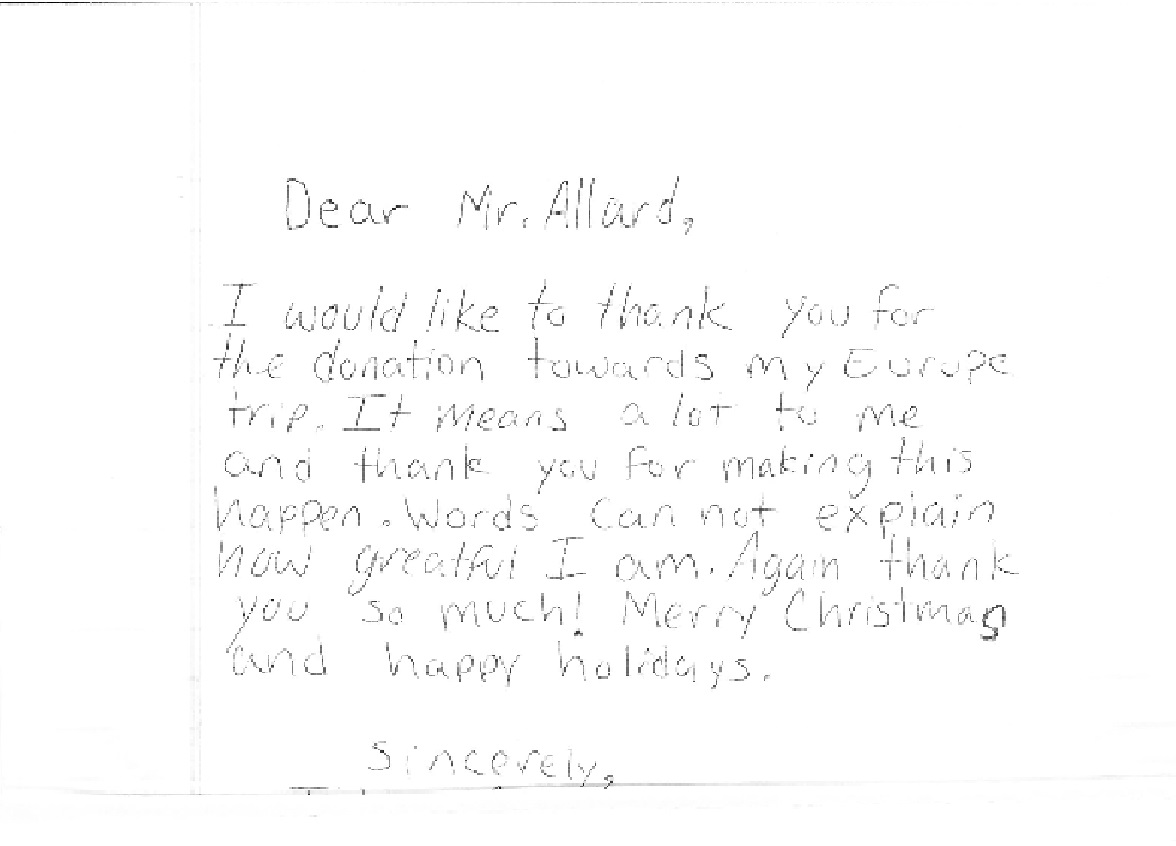 Dear Mr. Allard,
I would like to thank you for
the donation towards my Europe
trip. It means a lot to me
and thank you for making this
happen. Words can not explain
how greatful I am. Again thank
you so much! Merry Christmas
and happy holidays.
Sincerely,